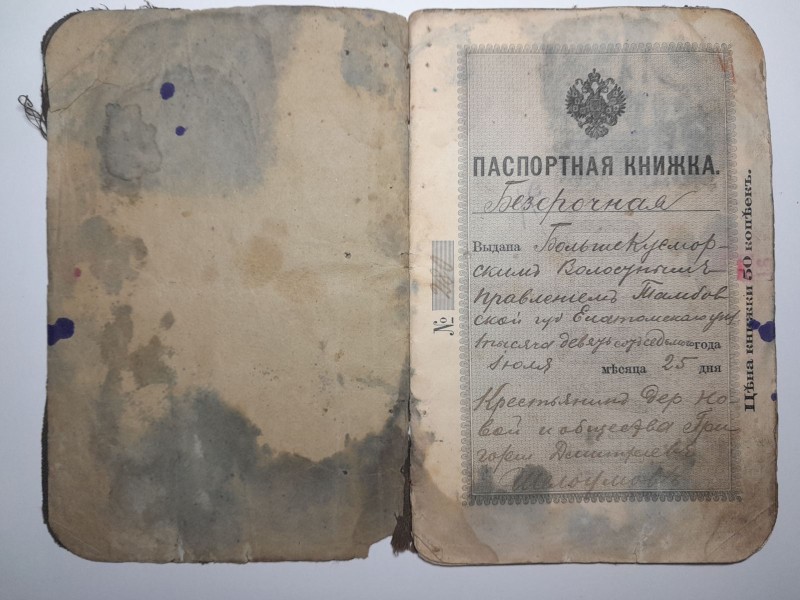 ПАСПОРТНАЯ КНИЖКА.
Безсрочная
Выдана Больше Кусмор-
скимъ Волостнымъ
Правленіемъ Тамбов
ской губ Елатомскаго
тысяча девять года
Іюля мѣсяца 25 дня
Крестьянинъ дер Но-
вой и общества Гри
горій Дмитріевъ
№
Цѣна книжки 50 копѣекъ.